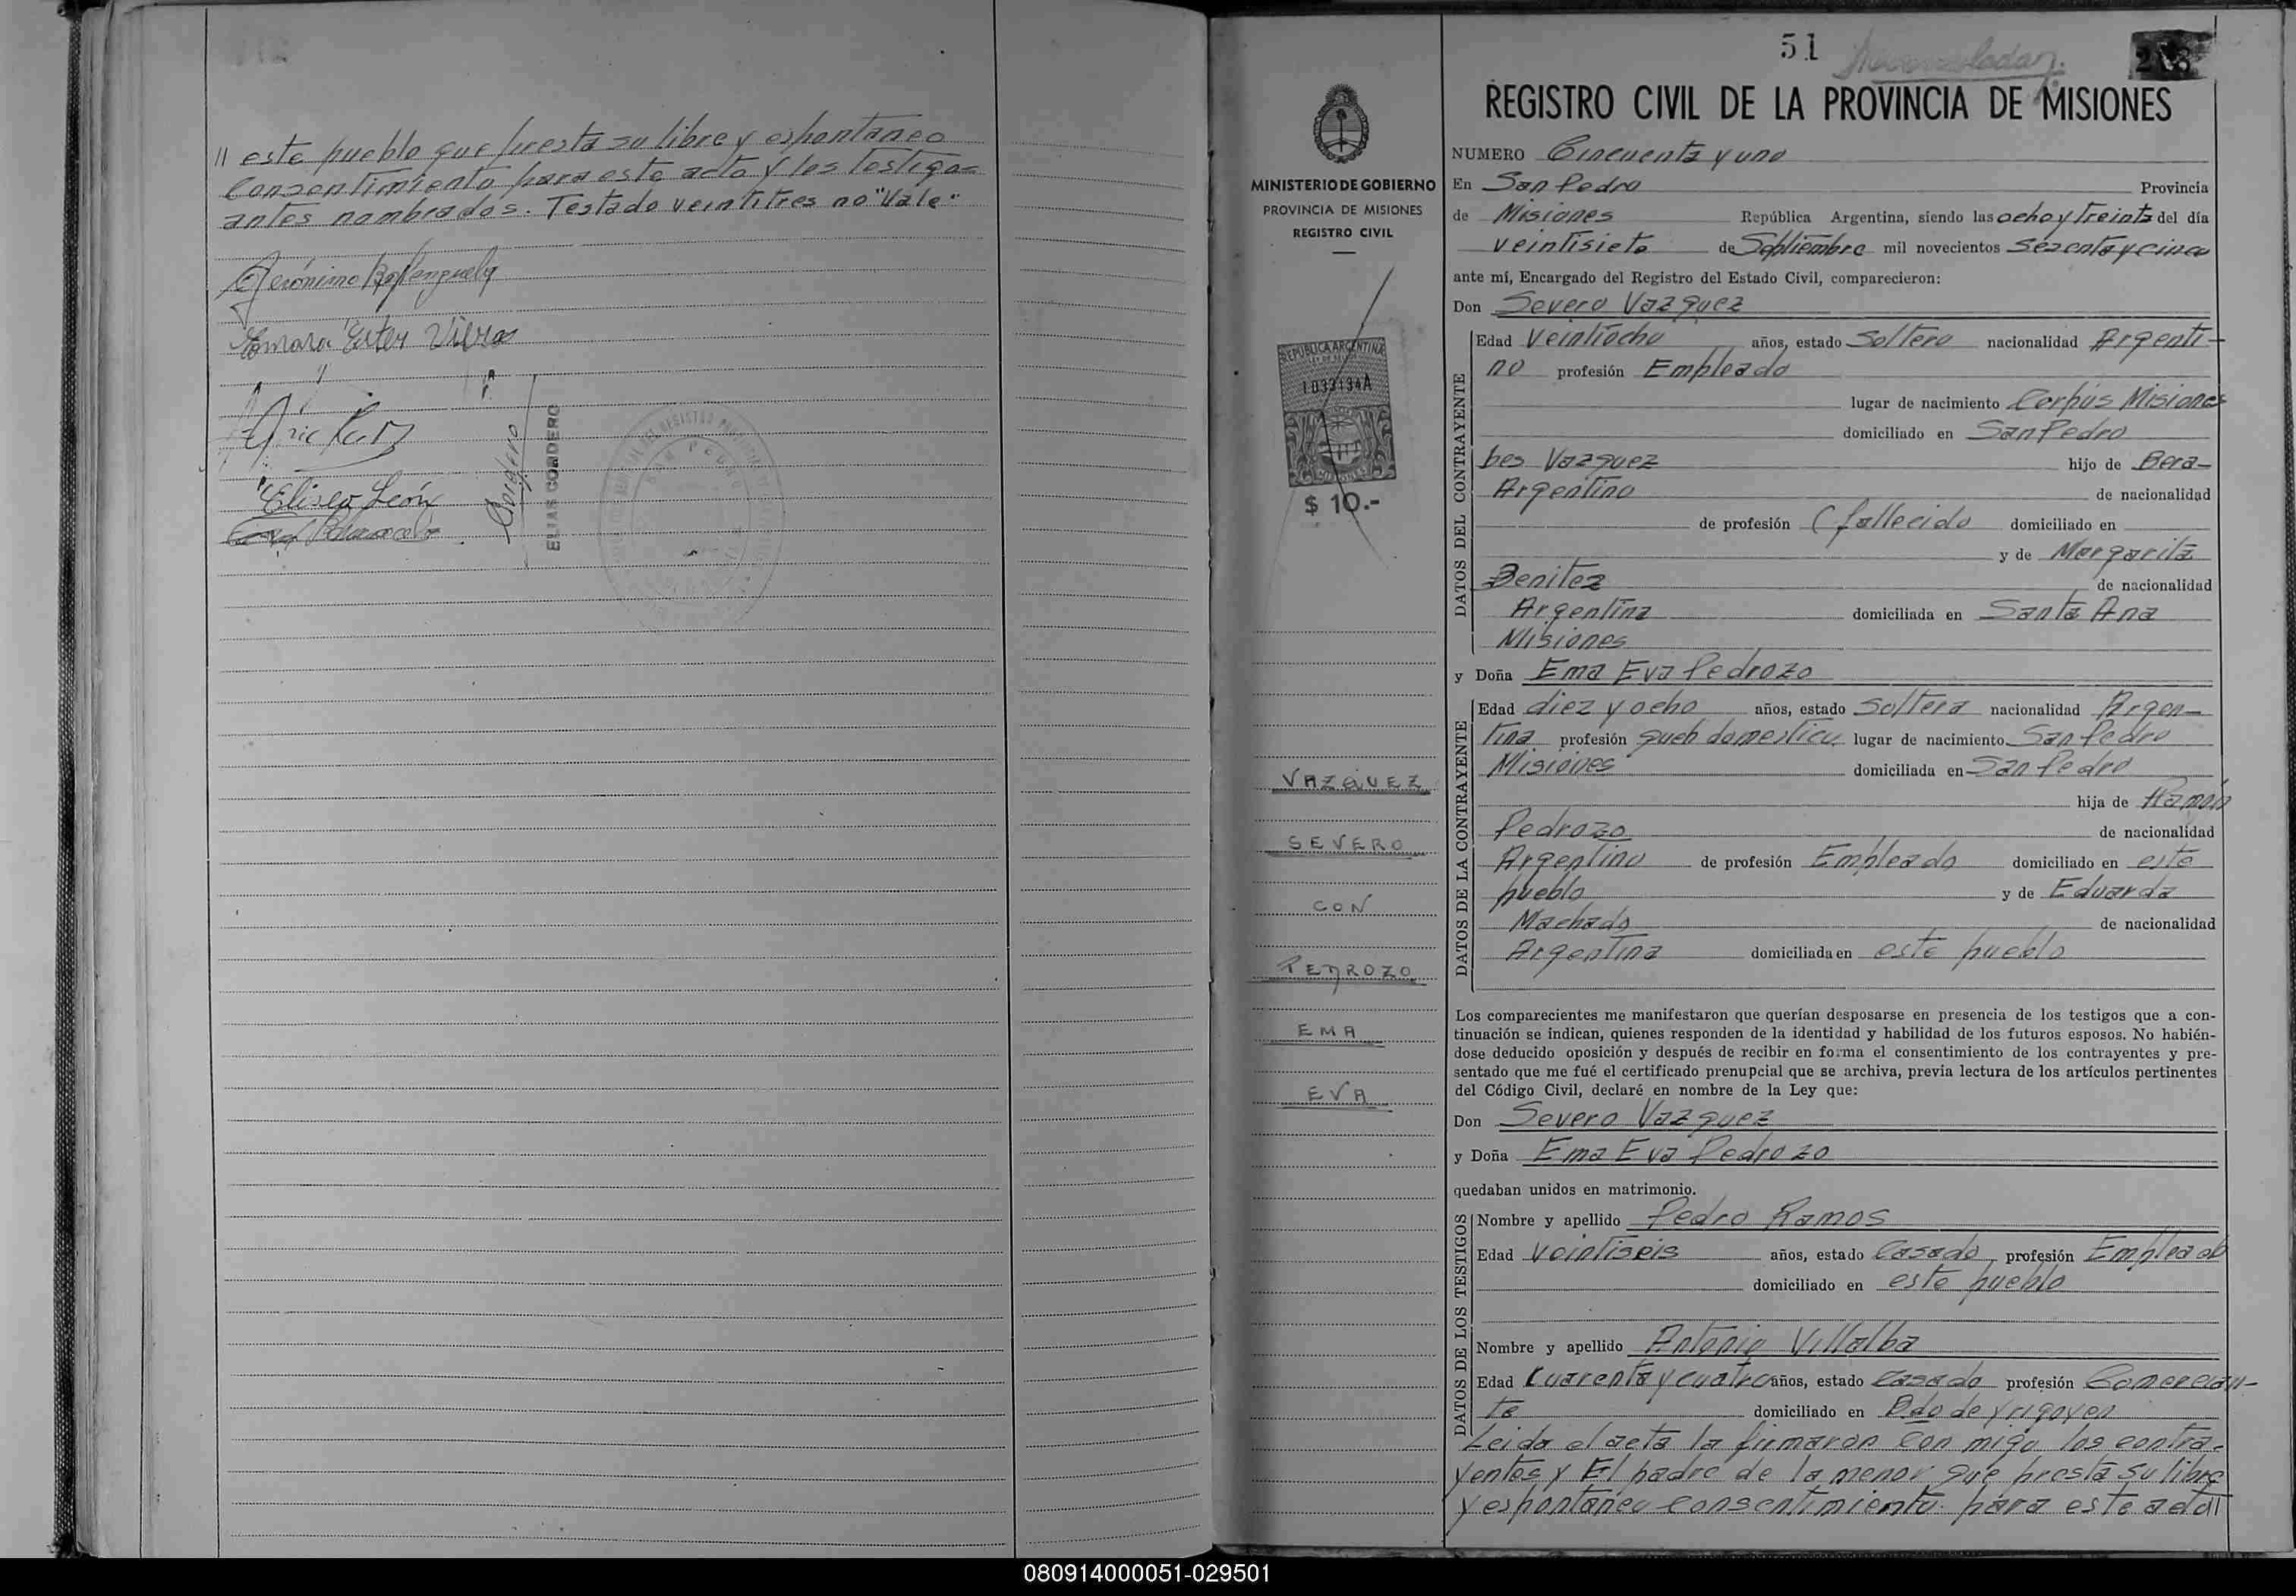 // este pueblo que presta su libre y espontaneo
Consentimiento para este acto y los testigos
antes nombrados. Testado veintitres no "Vale"
Jerónimo
Ester
Eliseo León
ELIAS CORDERO
51
REGISTRO CIVIL DE LA PROVINCIA DE MISIONES
MINISTERIO DE GOBIERNO
PROVINCIA DE MISIONES
REGISTRO CIVIL
REPUBLICA ARGENTINA
1033134A
$ 10.-
VAZQUEZ
SEVERO
CON
PEDROZO
EMA
EVA
NUMERO Cincuenta y uno
En San Pedro Provincia
de Misiones República Argentina, siendo las ocho y treinta del día
veintisiete de Septiembre mil novecientos sesenta y cinco
ante mí, Encargado del Registro del Estado Civil, comparecieron:
Don Severo Vazquez
DATOS DEL CONTRAYENTE
Edad Veintiocho años, estado Soltero nacionalidad Argenti-
no profesión Empleado
lugar de nacimiento Corpus Misiones
domiciliado en San Pedro
hijo de Bera-
bes Vazquez
de nacionalidad
Argentino
de profesión (fallecido domiciliado en
y de Margarita
Benitez de nacionalidad
Argentina domiciliada en Santa Ana
Misiones
y Doña Ema Eva Pedrozo
DATOS DE LA CONTRAYENTE
Edad diez y ocho años, estado Soltera nacionalidad Argen-
tina profesión queh domestico lugar de nacimiento San Pedro
Misiones domiciliada en San Pedro
hija de Ramón
Pedrozo de nacionalidad
Argentino de profesión Empleado domiciliado en este
pueblo y de Eduarda
Machado de nacionalidad
Argentina domiciliada en este pueblo
Los comparecientes me manifestaron que querían desposarse en presencia de los testigos que a con-
tinuación se indican, quienes responden de la identidad y habilidad de los futuros esposos. No habién-
dose deducido oposición y después de recibir en forma el consentimiento de los contrayentes y pre-
sentado que me fué el certificado prenupcial que se archiva, previa lectura de los artículos pertinentes
del Código Civil, declaré en nombre de la Ley que:
Don Severo Vazquez
y Doña Ema Eva Pedrozo
quedaban unidos en matrimonio.
DATOS DE LOS TESTIGOS
Nombre y apellido Pedro Ramos
Edad veintiseis años, estado Casado profesión Empleado
domiciliado en este pueblo
Nombre y apellido Antonio Villalba
Edad cuarenta y cuatro años, estado Casado profesión Comercian-
te domiciliado en B.do de Yrigoyen
Leida el acta la firmaron con migo los contra-
yentes y El padre de la menor que presta su libre
y espontaneo consentimiento para este acto//
080914000051-029501